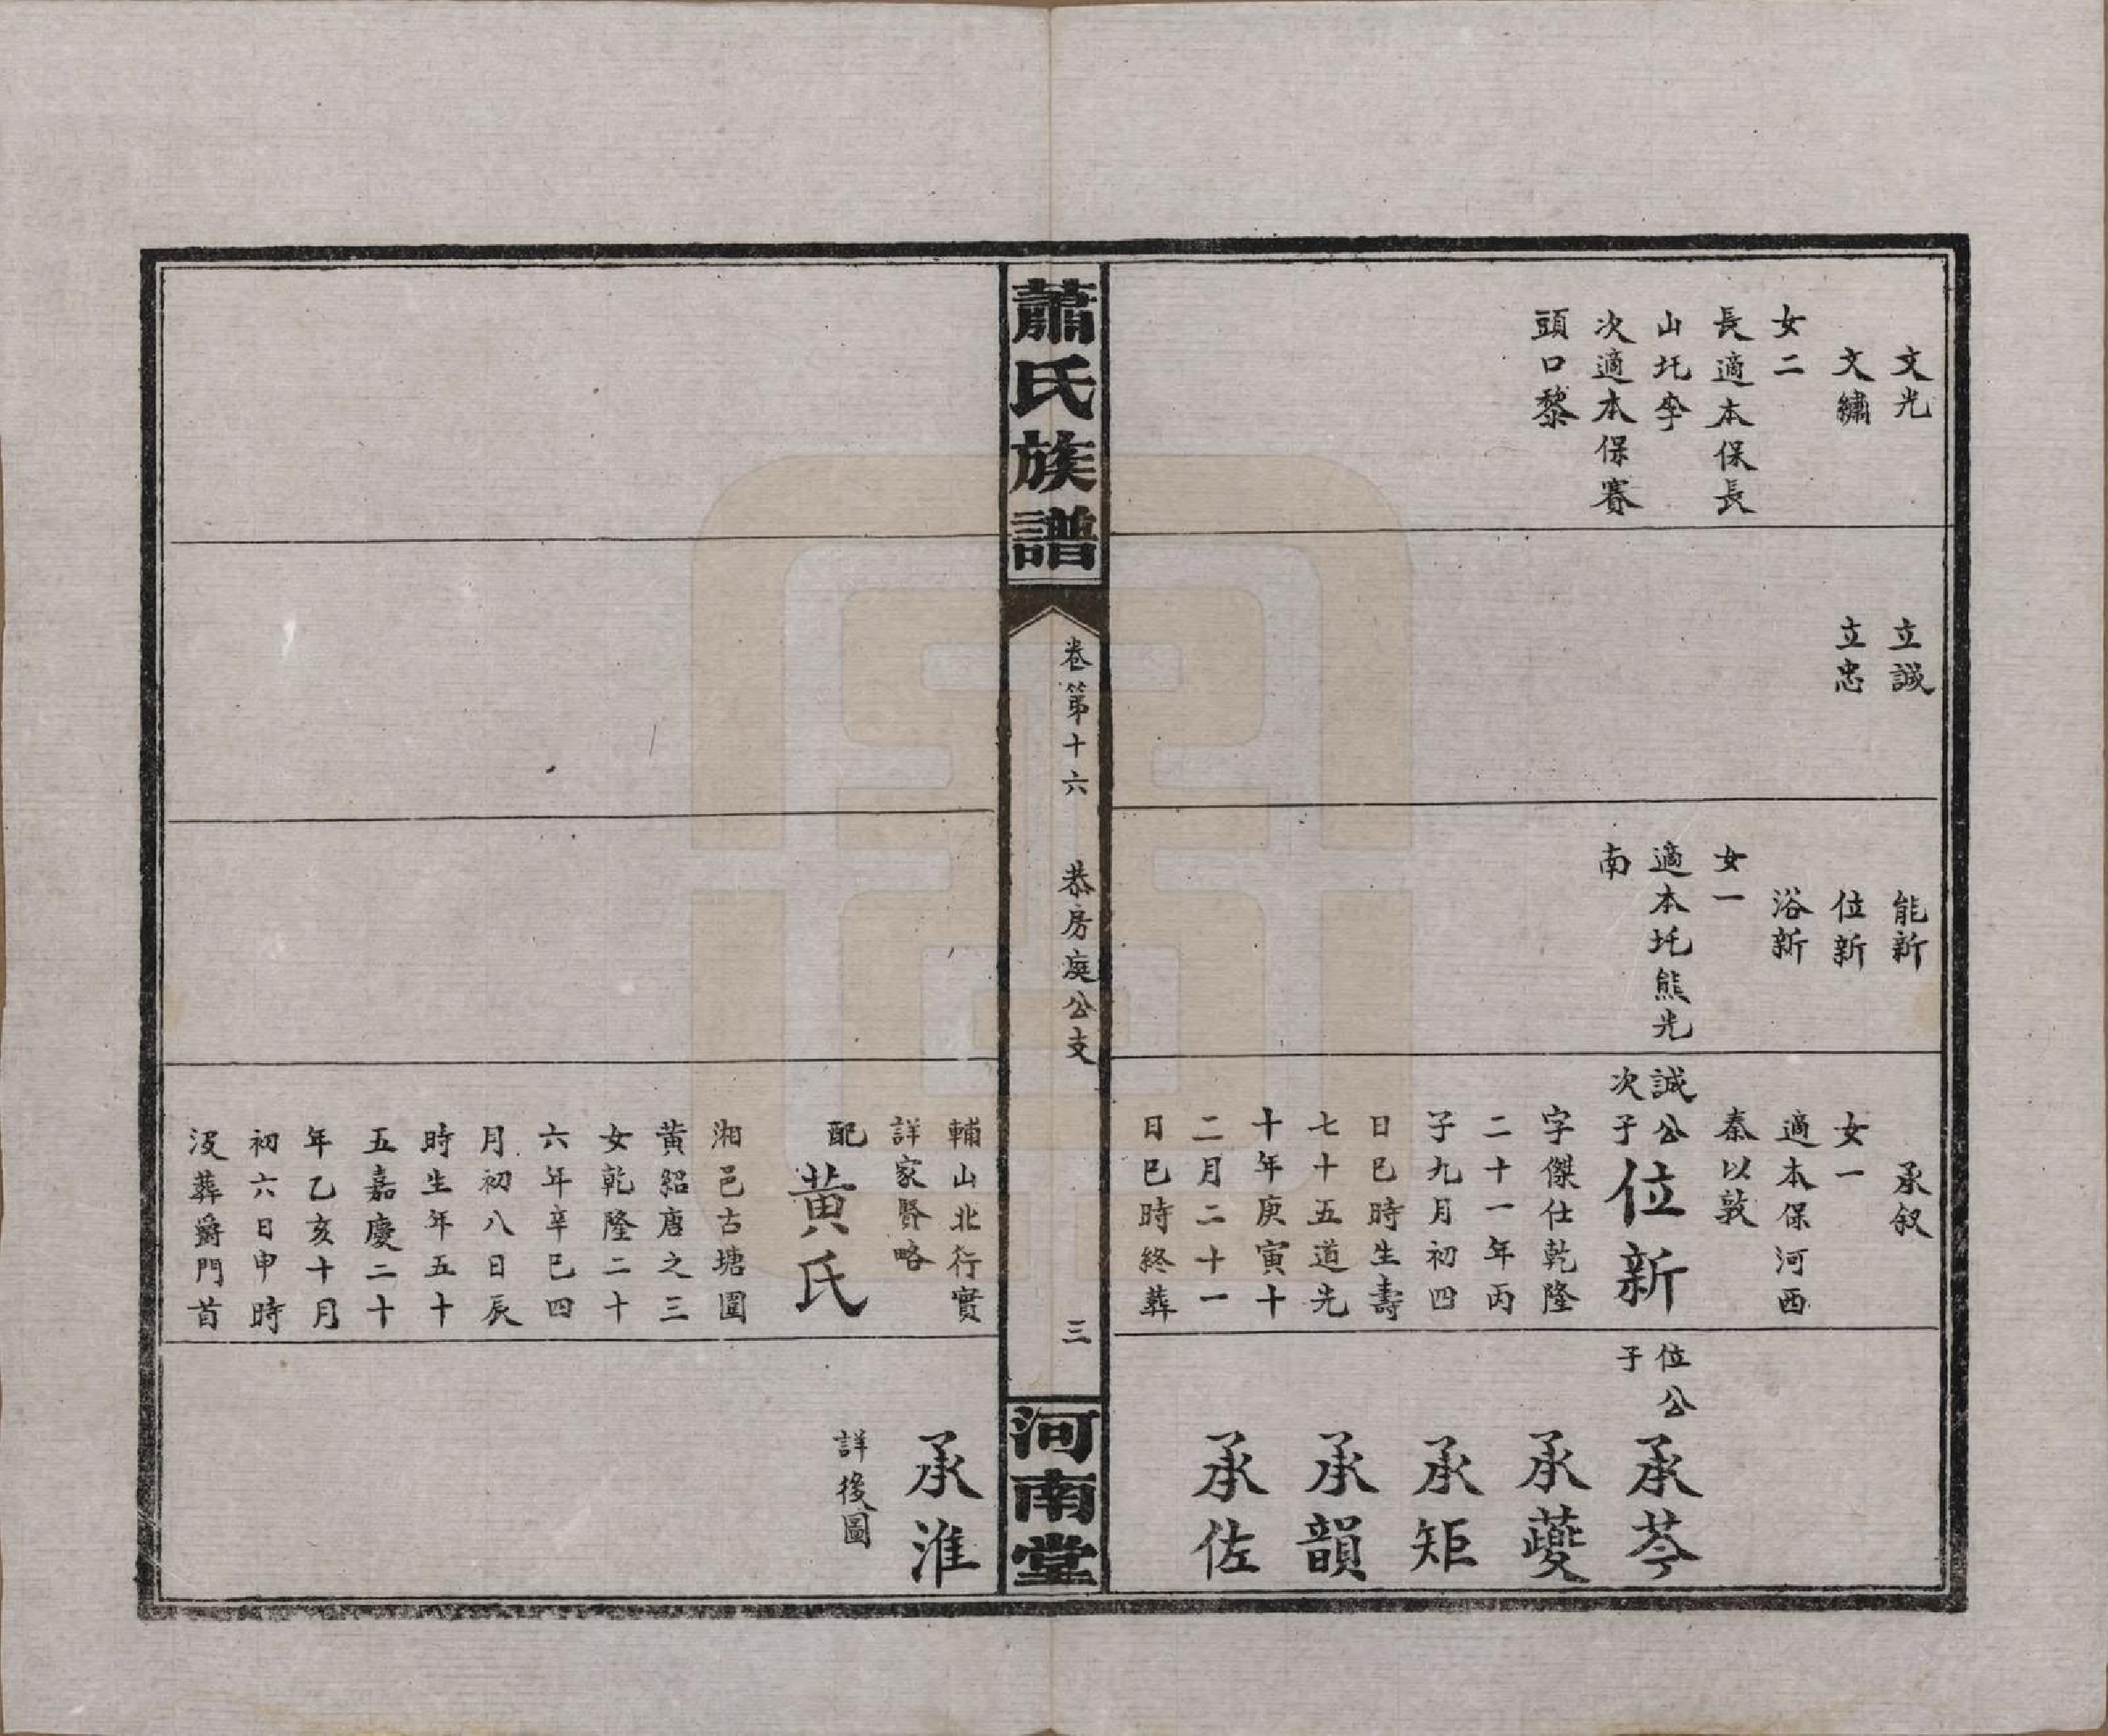 文光
文繡
女二
長適本保長
山圫李
次適本保賽
頭口黎
立誠
立忠
能新
位新
浴新
女一
適本圫熊光
南
承叙
女一
適本保河西
秦以敦
誠公
次子
位新
字傑仕乾隆
二十一年丙
子九月初四
日巳時生壽
七十五道光
十年庚寅十
二月二十一
日巳時終葬
位公
子
承芩
承夔
承矩
承韻
承佐
蕭氏族譜
卷第十六
恭房庭公支
三
河南堂
輔山北行實
詳家賢略
配黄氏
湘邑古塘圍
黄紹唐之三
女乾隆二十
六年辛巳四
月初八日辰
時生年五十
五嘉慶二十
年乙亥十月
初六日申時
没葬爵門首
承淮
詳後圖